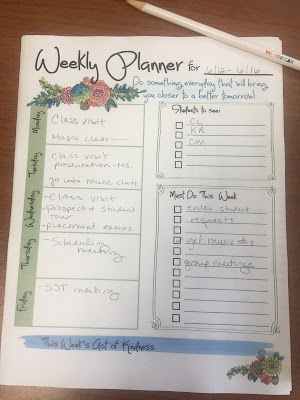 Weekly Planner for 6/12-6/16
Do something everyday that will bring
you closer to a better tomorrow!
Monday
Class visit
Music class
Tuesday
class visit
presentation-MS.
go into music class
Wednesday
-Class visit
-prospective student
tour
-placement exams
Thursday
-Scheduling
meeting
Friday
-SST meeting
Students to see:
CL
KR
CM
Must Do This Week
enter student
requests
get music #s
group meetings
This Week's Act of Kindness